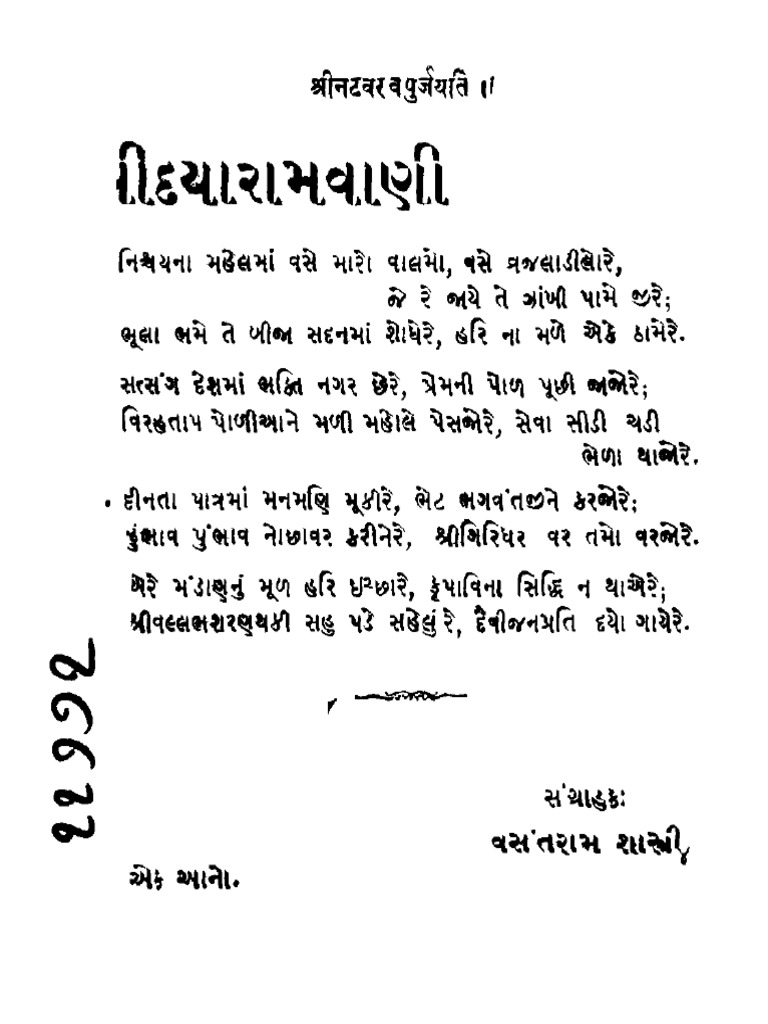 શ્રીનટવરવપુર્જયતિ ॥
શ્રીદયારામવાણી
નિશ્ચયના મહેલમાં વસે મારો વાલમો, વસે વ્રજલાડીલોરે,
જે રે જાયે તે ઝાંખી પામે જીરે;
ભૂલા ભમે તે બીજા સદનમાં શોધેરે, હરિ ના મળે એકે ઠામેરે.
સત્સંગ દેશમાં ભક્તિ નગર છેરે, પ્રેમની પોળ પૂછી જાજોરે;
વિરહતાપ પોળીઆને મળી મહોલે પેસજોરે, સેવા સીડી ચડી
ભેળા થાજોરે.
દીનતા પાત્રમાં મનમણિ મૂકીરે, ભેટ ભગવંતજીને કરજોરે;
હુંભાવ પુંભાવ નોછાવર કરીનેરે, શ્રીગિરિધર વર તમો વરજોરે.
એરે મંડાણનું મૂળ હરિ ઇચ્છારે, કૃપાવિના સિદ્ધિ ન થાએરે;
શ્રીવલ્લભશરણથકી સહુ પડે સહેલું રે, દૈવીજનપ્રતિ દયો ગાયેરે.
સંગ્રાહકઃ
વસંતરામ શાસ્ત્રી
એક આનો.